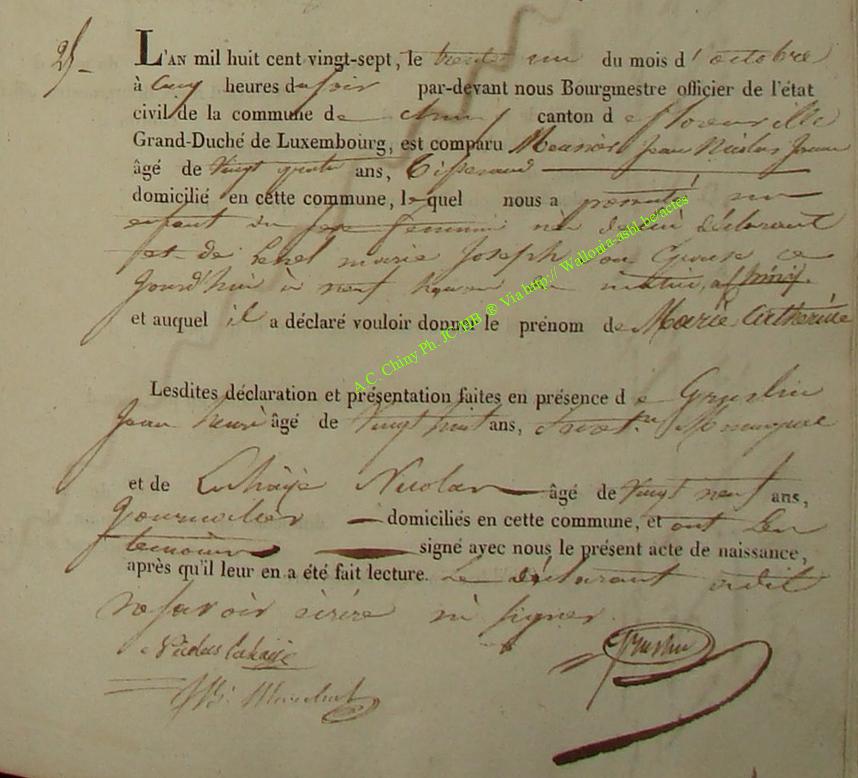 25
L'AN mil huit cent vingt-sept, le trente un du mois d'octobre
à cinq heures du soir par-devant nous Bourgmestre officier de l'état
civil de la commune de Chiny canton de florenville
Grand-Duché de Luxembourg, est comparu Jean Nicolas
âgé de vingt quatre ans, Tisserand
domicilié en cette commune, lequel nous a présenté un
enfant du sexe feminin né du lui déclarant
et de marie Joseph son Epouse ce
jourd'hui à neuf heures du matin, a
et auquel il a déclaré vouloir donner le prénom de Marie Catherine
A.C. Chiny Ph. JCHBB ® Via http:// Wallonia-asbl.be/actes
Lesdites déclaration et présentation faites en présence de Gruslin
Jean henri âgé de vingt huit ans,
et de Lahaÿe Nicolas âgé de vingt neuf ans,
journalier domiciliés en cette commune, et ont les
temoins signé avec nous le présent acte de naissance,
après qu'il leur en a été fait lecture. Le déclarant a dit
ne savoir écrire ni signer
Nicolas Lahaÿe Gruslin